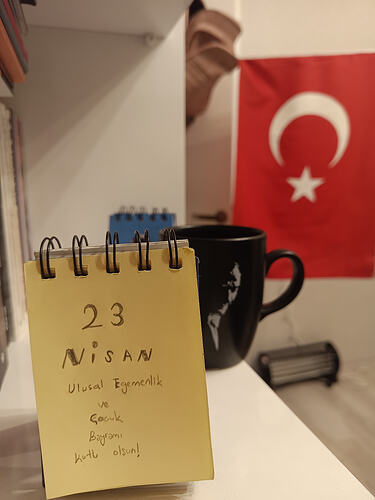 23
NiSAN
Ulusal Egemenlik
ve
Çocuk
Bayramı
kutlu olsun!